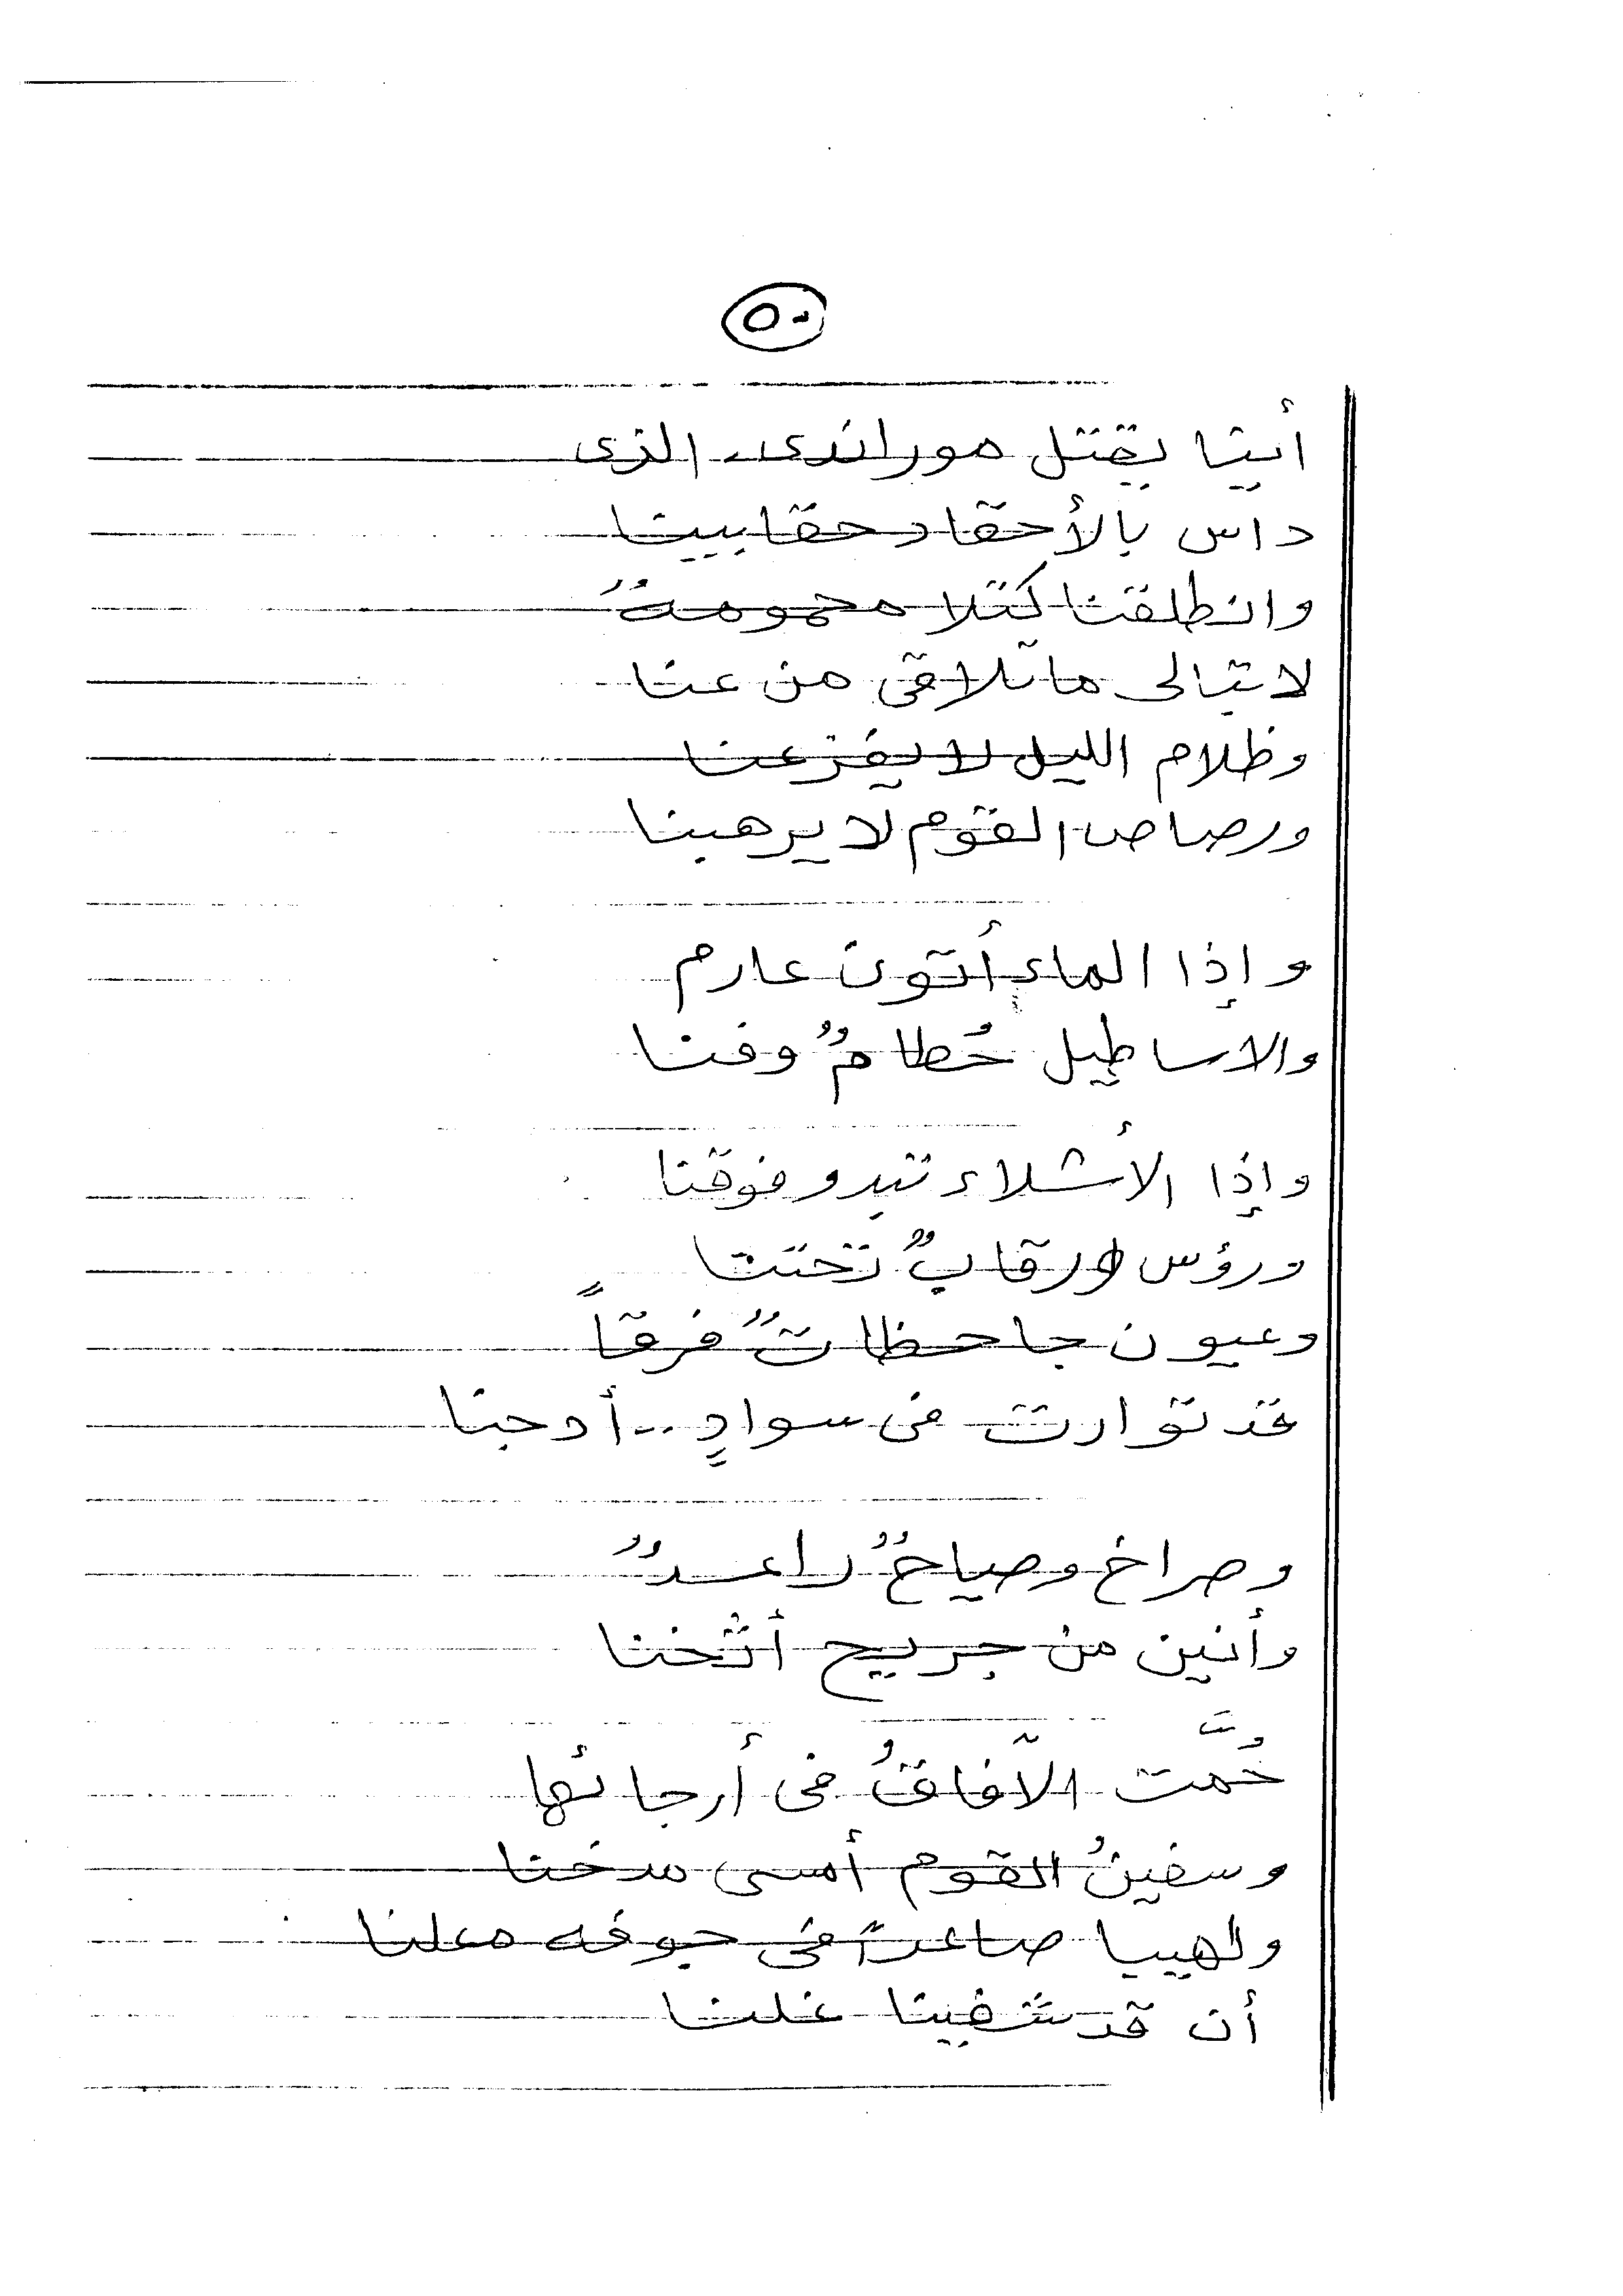 ٥٠
أينا يقتل موراندى.. الذى
داس بالأحقاد حقابيتا
وانطلقنا كتلا محمومةٌ
لا تبالى ما تلاقى من عنا
وظلام الليل لا يفزعنا
ورصاص القوم لا يرهبنا
وإذا الماء أتون عارم
والاساطيل حُطامٌ وفنا
وإذا الأشلاء تبدو فوقنا
ورؤس ورقابٌ تحتنا
وعيون جاحظاتٌ فرقاً
قد توارت فى سوادٍ .. أدجنا
وصراخ وصياحٌ راعدٌ
وأنين من جريح أثخنا
حُمَّت الآفاقُ فى أرجائها
وسفينُ القوم أمسى مدخنا
ولهيبا صاعداً فى جوفه معلنا
أن قد شفينا غلنا